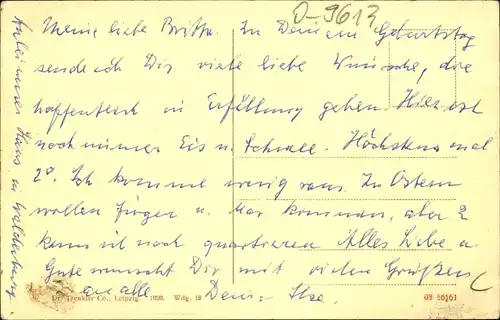 D-9613
Meine liebe Britta. Zu Deinem Geburtstag
sende ich Dir viele liebe Wünsche, die
hoffentlich in Erfüllung gehen. Hier ist
noch immer Eis u. Schnee. Höchstens mal
2°. Ich komme wenig raus. Zu Ostern
wollen Jürgen u. kommen, aber
kann ich noch quartieren Alles Liebe u.
Gute wünscht Dir mit vielen Grüßen
an alle Deine Ilse.
Dr. Trenkler Co., Leipzig. 1928. Wdg. 18
08 56161
Haus in